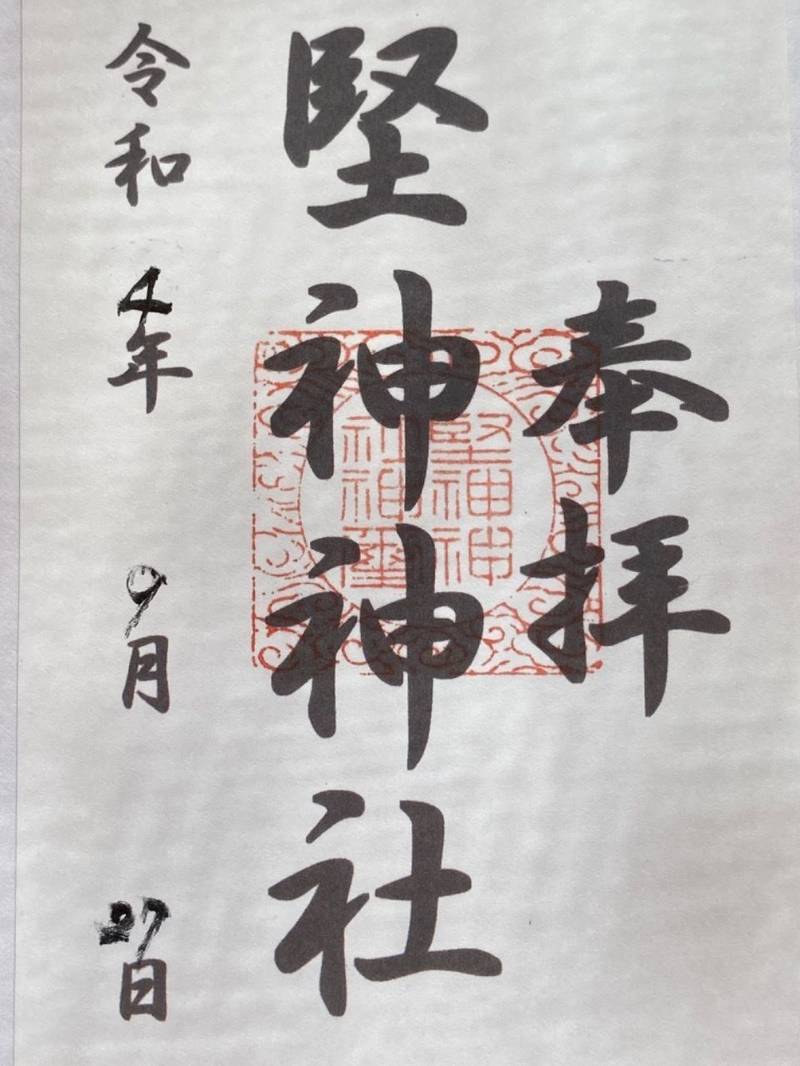 奉拝
堅神神社
堅神神
令和4年9月27日